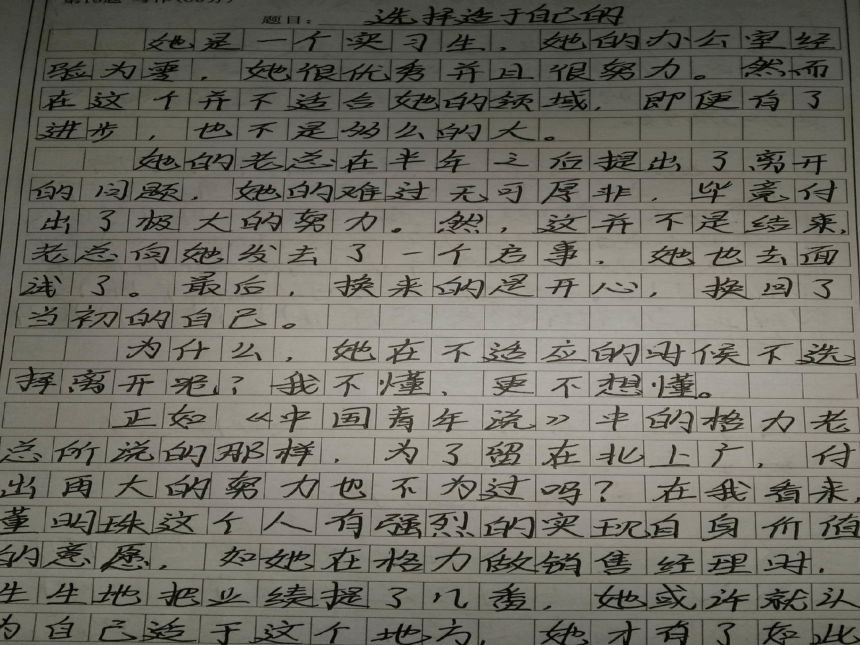 题目： 选择适于自己的
她是一个实习生，她的办公室经
验为零，她很优秀并且很努力。然而
在这个并不适合她的领域，即便有了
进步，也不是那么的大。
她的老总在半年之后提出了离开
的问题，她的难过无可厚非，毕竟付
出了极大的努力。然，这并不是结束，
老总向她发去了一个启事，她也去面
试了。最后，换来的是开心，换回了
当初的自己。
为什么，她在不适应的时候不选
择离开呢？我不懂，更不想懂。
正如《中国青年说》中的格力老
总所说的那样，为了留在北上广，付
出再大的努力也不为过吗？在我看来，
董明珠这个人有强烈的实现自身价值
的意愿，如她在格力做销售经理时，
生生地把业绩提了几番，她或许就认
为自己适于这个地方，她才有了如此